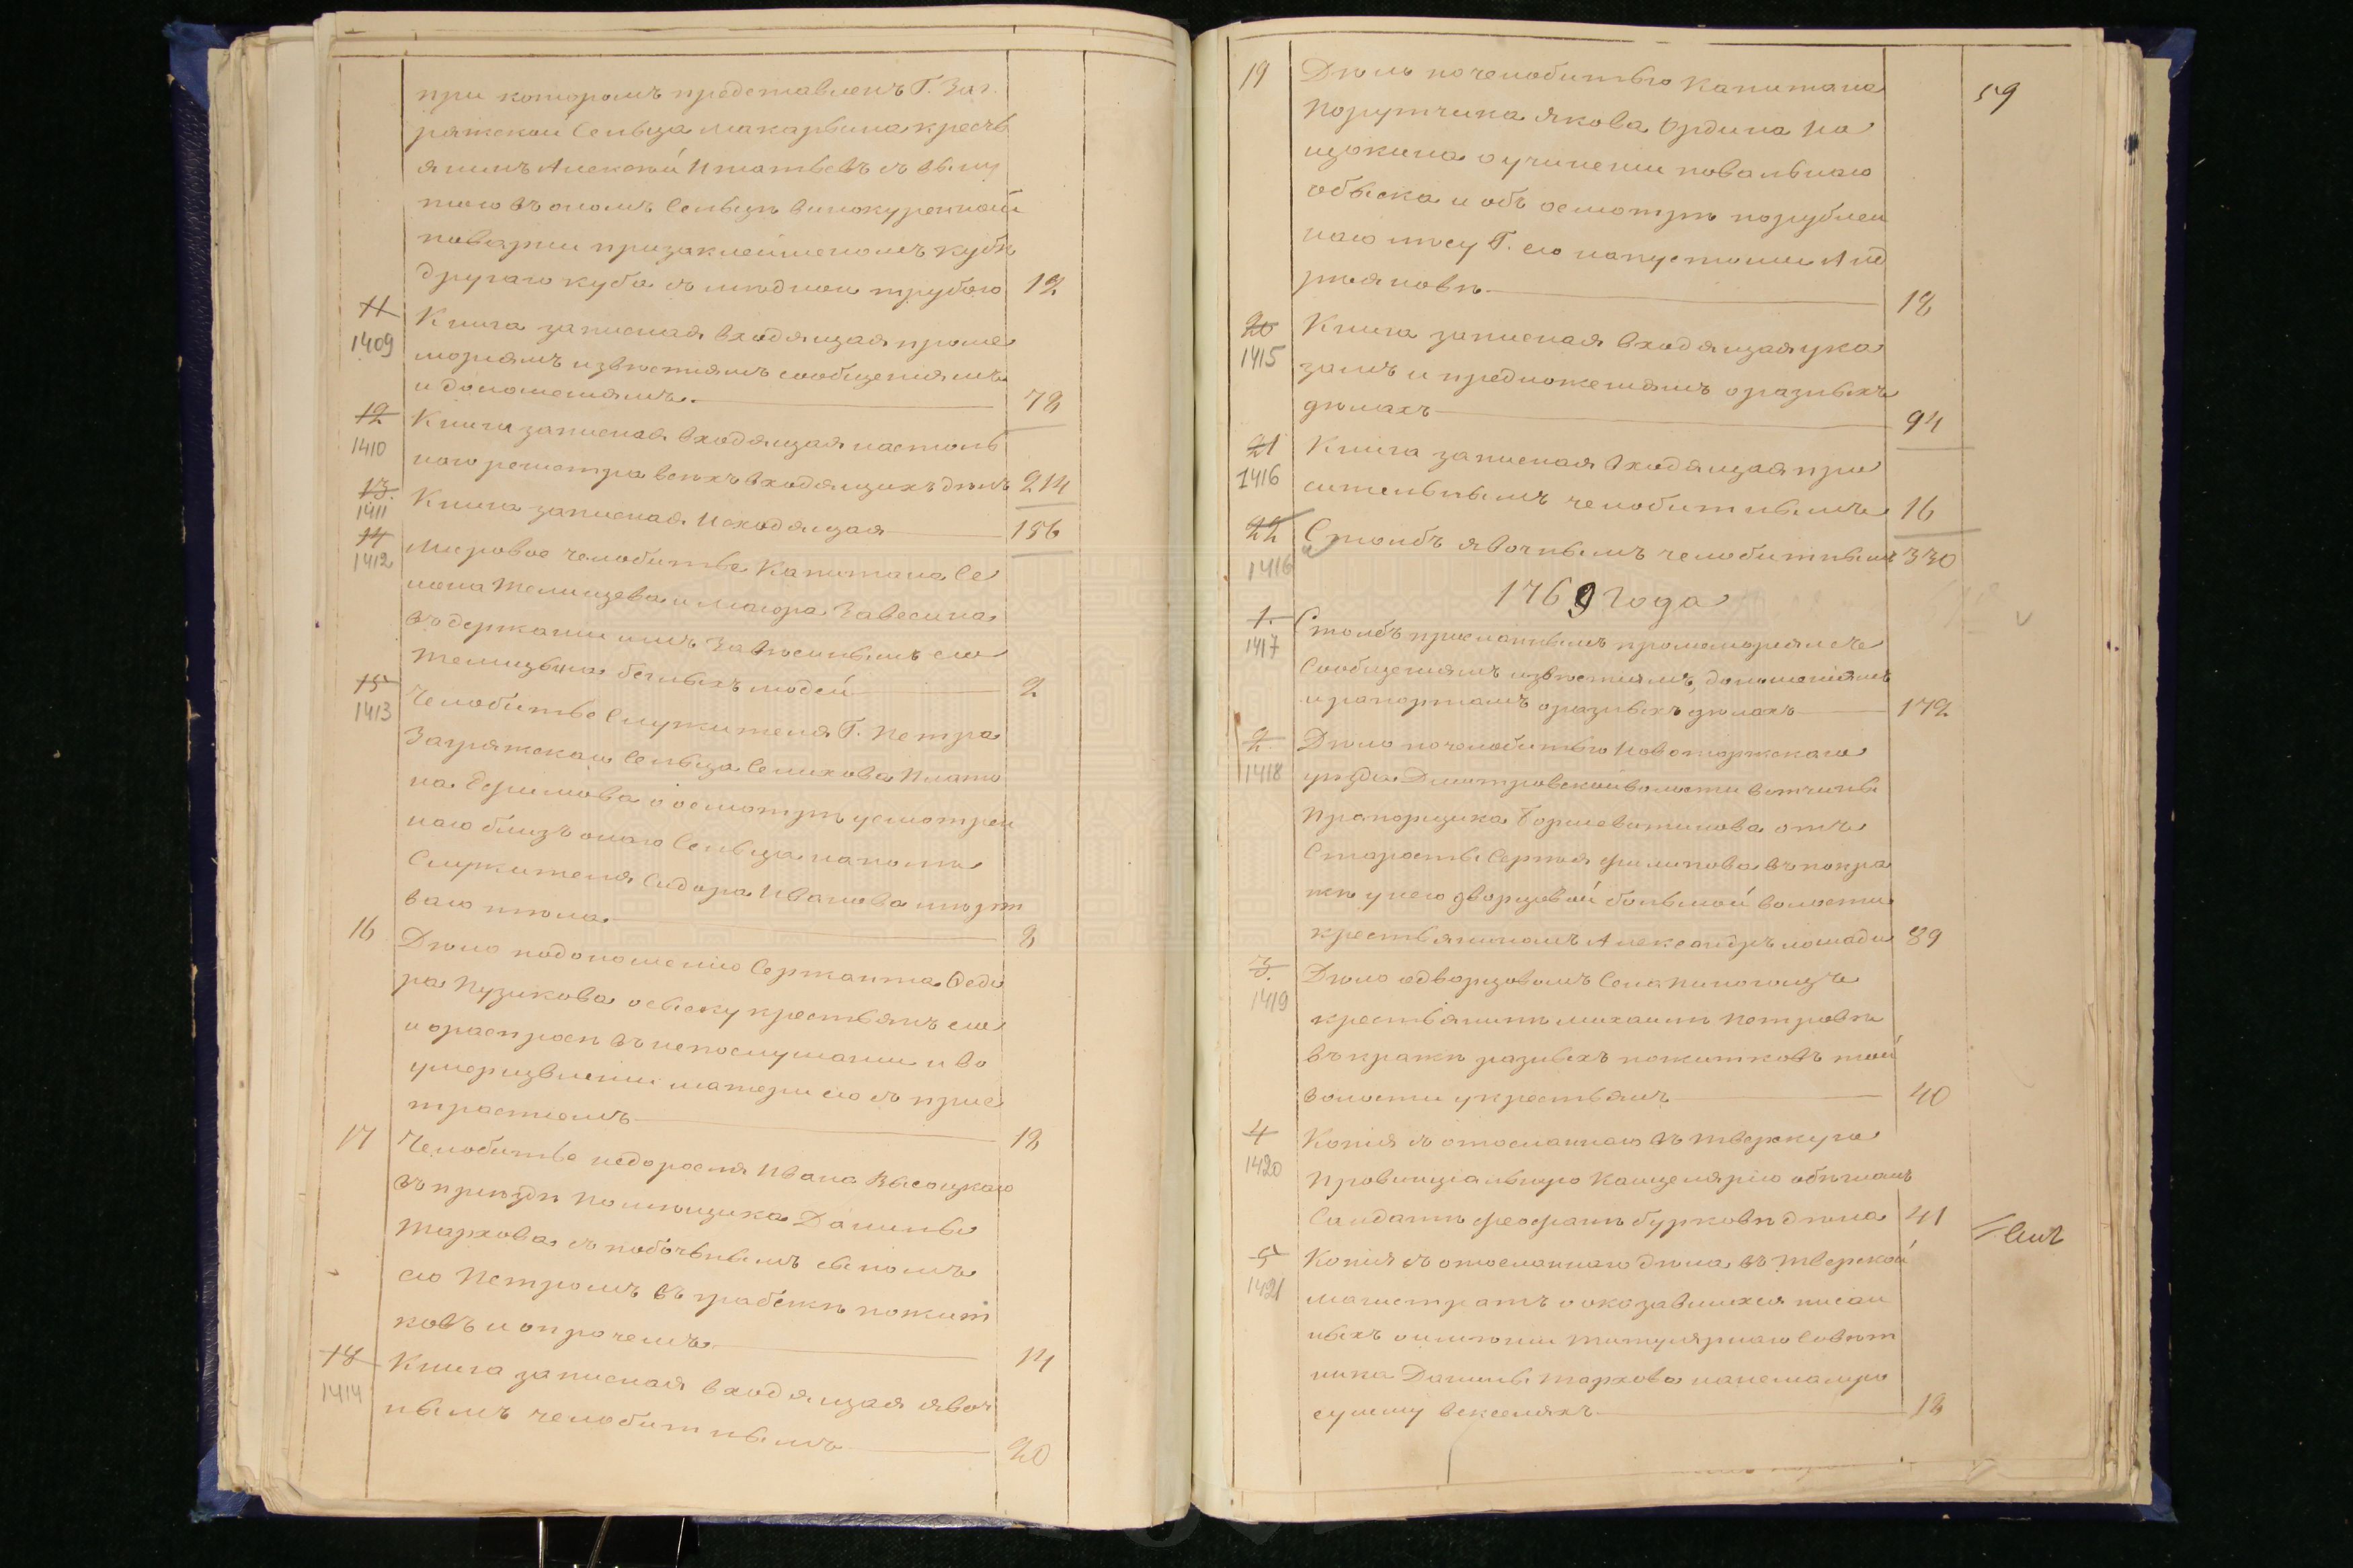 при которомъ представленъ Г. Заг.
ряжской Сельца Макарьина кресть
янинъ Алексѣй Игнатьевъ съ выну
таго въ ономъ Сельцѣ винокуренной
поварни при заклейменомъ кубѣ
другаго куба съ мѣдною трубою 12
11
1409
Книга записная входящая проме
моріямъ извѣстіямъ сообщеніямъ
и доношеніямъ. 78
12
1410
Книга записная входящая настоль
ного регистра всѣхъ входящихъ дѣлъ 214
13.
1411
Книга записная Исходящая 156
14
1412
Мировое челобитье Капитана Се
мена и Маіора Завесина
въ держаніи имъ Завѣсинымъ его
беглыхъ людей 2
15
1413
Челобитье Служителя Г. Петра
Загряжскаго Сельца Семихова Плато
на Ефимова о осмотрѣ усмотрен
наго близъ онаго Сельца на полѣ
Служителя Сидора Иванова мерт
ваго тѣла 8
16
Дѣло по доношенію Сержанта Федо
ра Пузикова о сыску крестьянъ его
и о распросѣ въ непослушаніи и во
умерщвленіи матери его съ прис
трастіемъ 18
17
Челобитье недоросля Ивана Высоцкаго
въ приѣзде Помѣщика Данилы
Тархова съ побочнымъ сыномъ
его Петромъ въ грабежѣ пожит
ковъ и о прочемъ. 14
18
1414
Книга записная входящая явоч
нымъ челобитнымъ 20
59
19
Дѣло по челобитью Капитана
Порутчика Якова Ордина На
щокина о учинении повальнаго
обыска и объ осмотрѣ порублен
наго лѣсу Г. его на пустоши Анд
реяновѣ 18
20
1415
Книга записная входящая ука
замъ и предложеніямъ о разныхъ
дѣлахъ 94
21
1416
Книга записная входящая про
сительнымъ челобитнымъ 16
22
1416
Столбъ явочнымъ челобитнымъ 330
1769 Года
1.
1417
Столбъ присланнымъ промеморіямъ
Сообщеніямъ извѣстіямъ, доношеніямъ
и рапортамъ о разныхъ дѣлахъ 172
2.
1418
Дѣло по челобитью Новоторжскаго
уезда Дмитровской волости вотчины
Прапорщика отъ
Старосты Сергѣя Филипова въ покра
жѣ у него дворцовой большой волости
крестьяниномъ Александръ лошади 89
3.
1419
Дѣло о дворцовомъ Села
крестьянинѣ Михаилѣ Петровѣ
въ кражѣ разныхъ пожитковъ той
волости у крестьянъ 40
4
1420
Копія съ отосланнаго въ Тверскую
Провинціальную Канцелярію о бѣгломъ
Солдатѣ Феофанѣ Бурковѣ дѣла 41
5
1421
Копія съ отосланнаго дѣла въ Тверской
Магистратъ о оказавшихся писан
ныхъ о имѣніи Титулярнаго Совѣт
ника Данилы Тархова на немалую
сумму векселяхъ 12